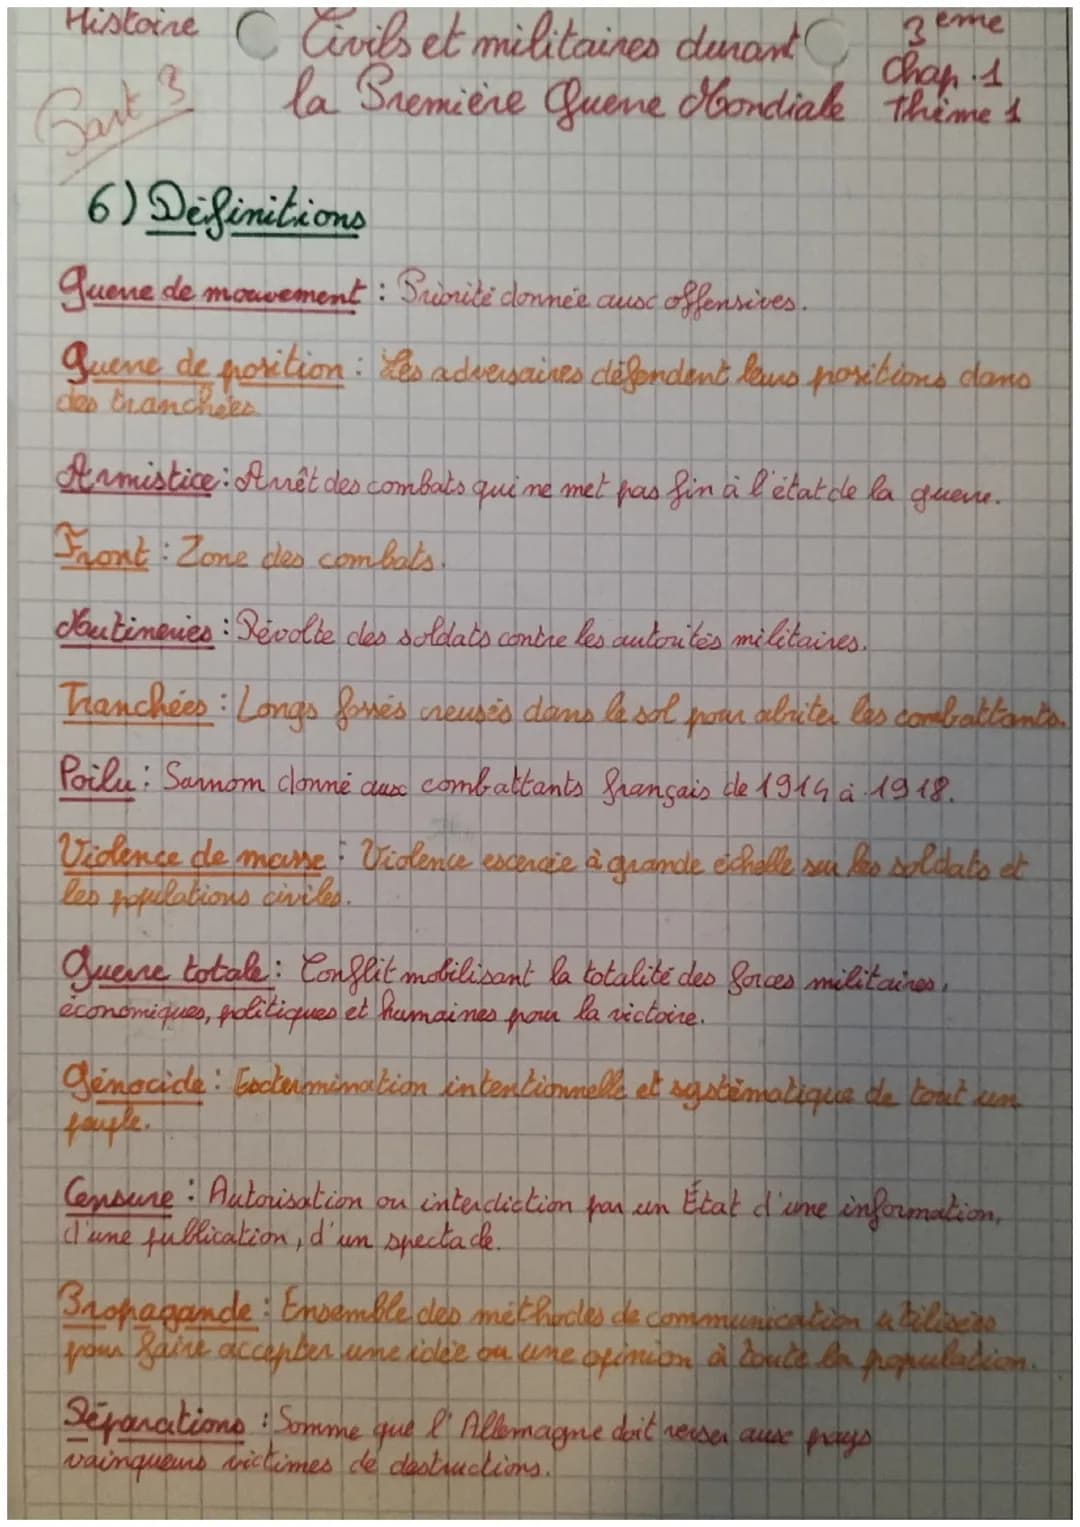 Histoire
Civils et militaires durant
la Première Guerre Mondiale
3ème
Chap.1
Thème 1
Part 3
6) Définitions
Guerre de mouvement : Priorité donnée aux offensives.
Guerre de position : Les adversaires défendent leurs positions dans
des tranchées.
Armistice : Arrêt des combats qui ne met pas fin à l'état de la guerre.
Front : Zone des combats.
Mutineries : Révolte des soldats contre les autorités militaires.
Tranchées : Longs fossés creusés dans le sol pour abriter les combattants.
Poilu : Surnom donné aux combattants français de 1914 à 1918.
Violence de masse : Violence exercée à grande échelle sur les soldats et
les populations civiles.
Guerre totale : Conflit mobilisant la totalité des forces militaires,
économiques, politiques et humaines pour la victoire.
Génocide : Extermination intentionnelle et systématique de tout un
peuple.
Censure : Autorisation ou interdiction par un État d'une information,
d'une publication, d'un spectacle.
Propagande : Ensemble des méthodes de communication utilisées
pour faire accepter une idée ou une opinion à toute la population.
Réparations : Somme que l'Allemagne doit verser aux pays
vainqueurs victimes de destructions.